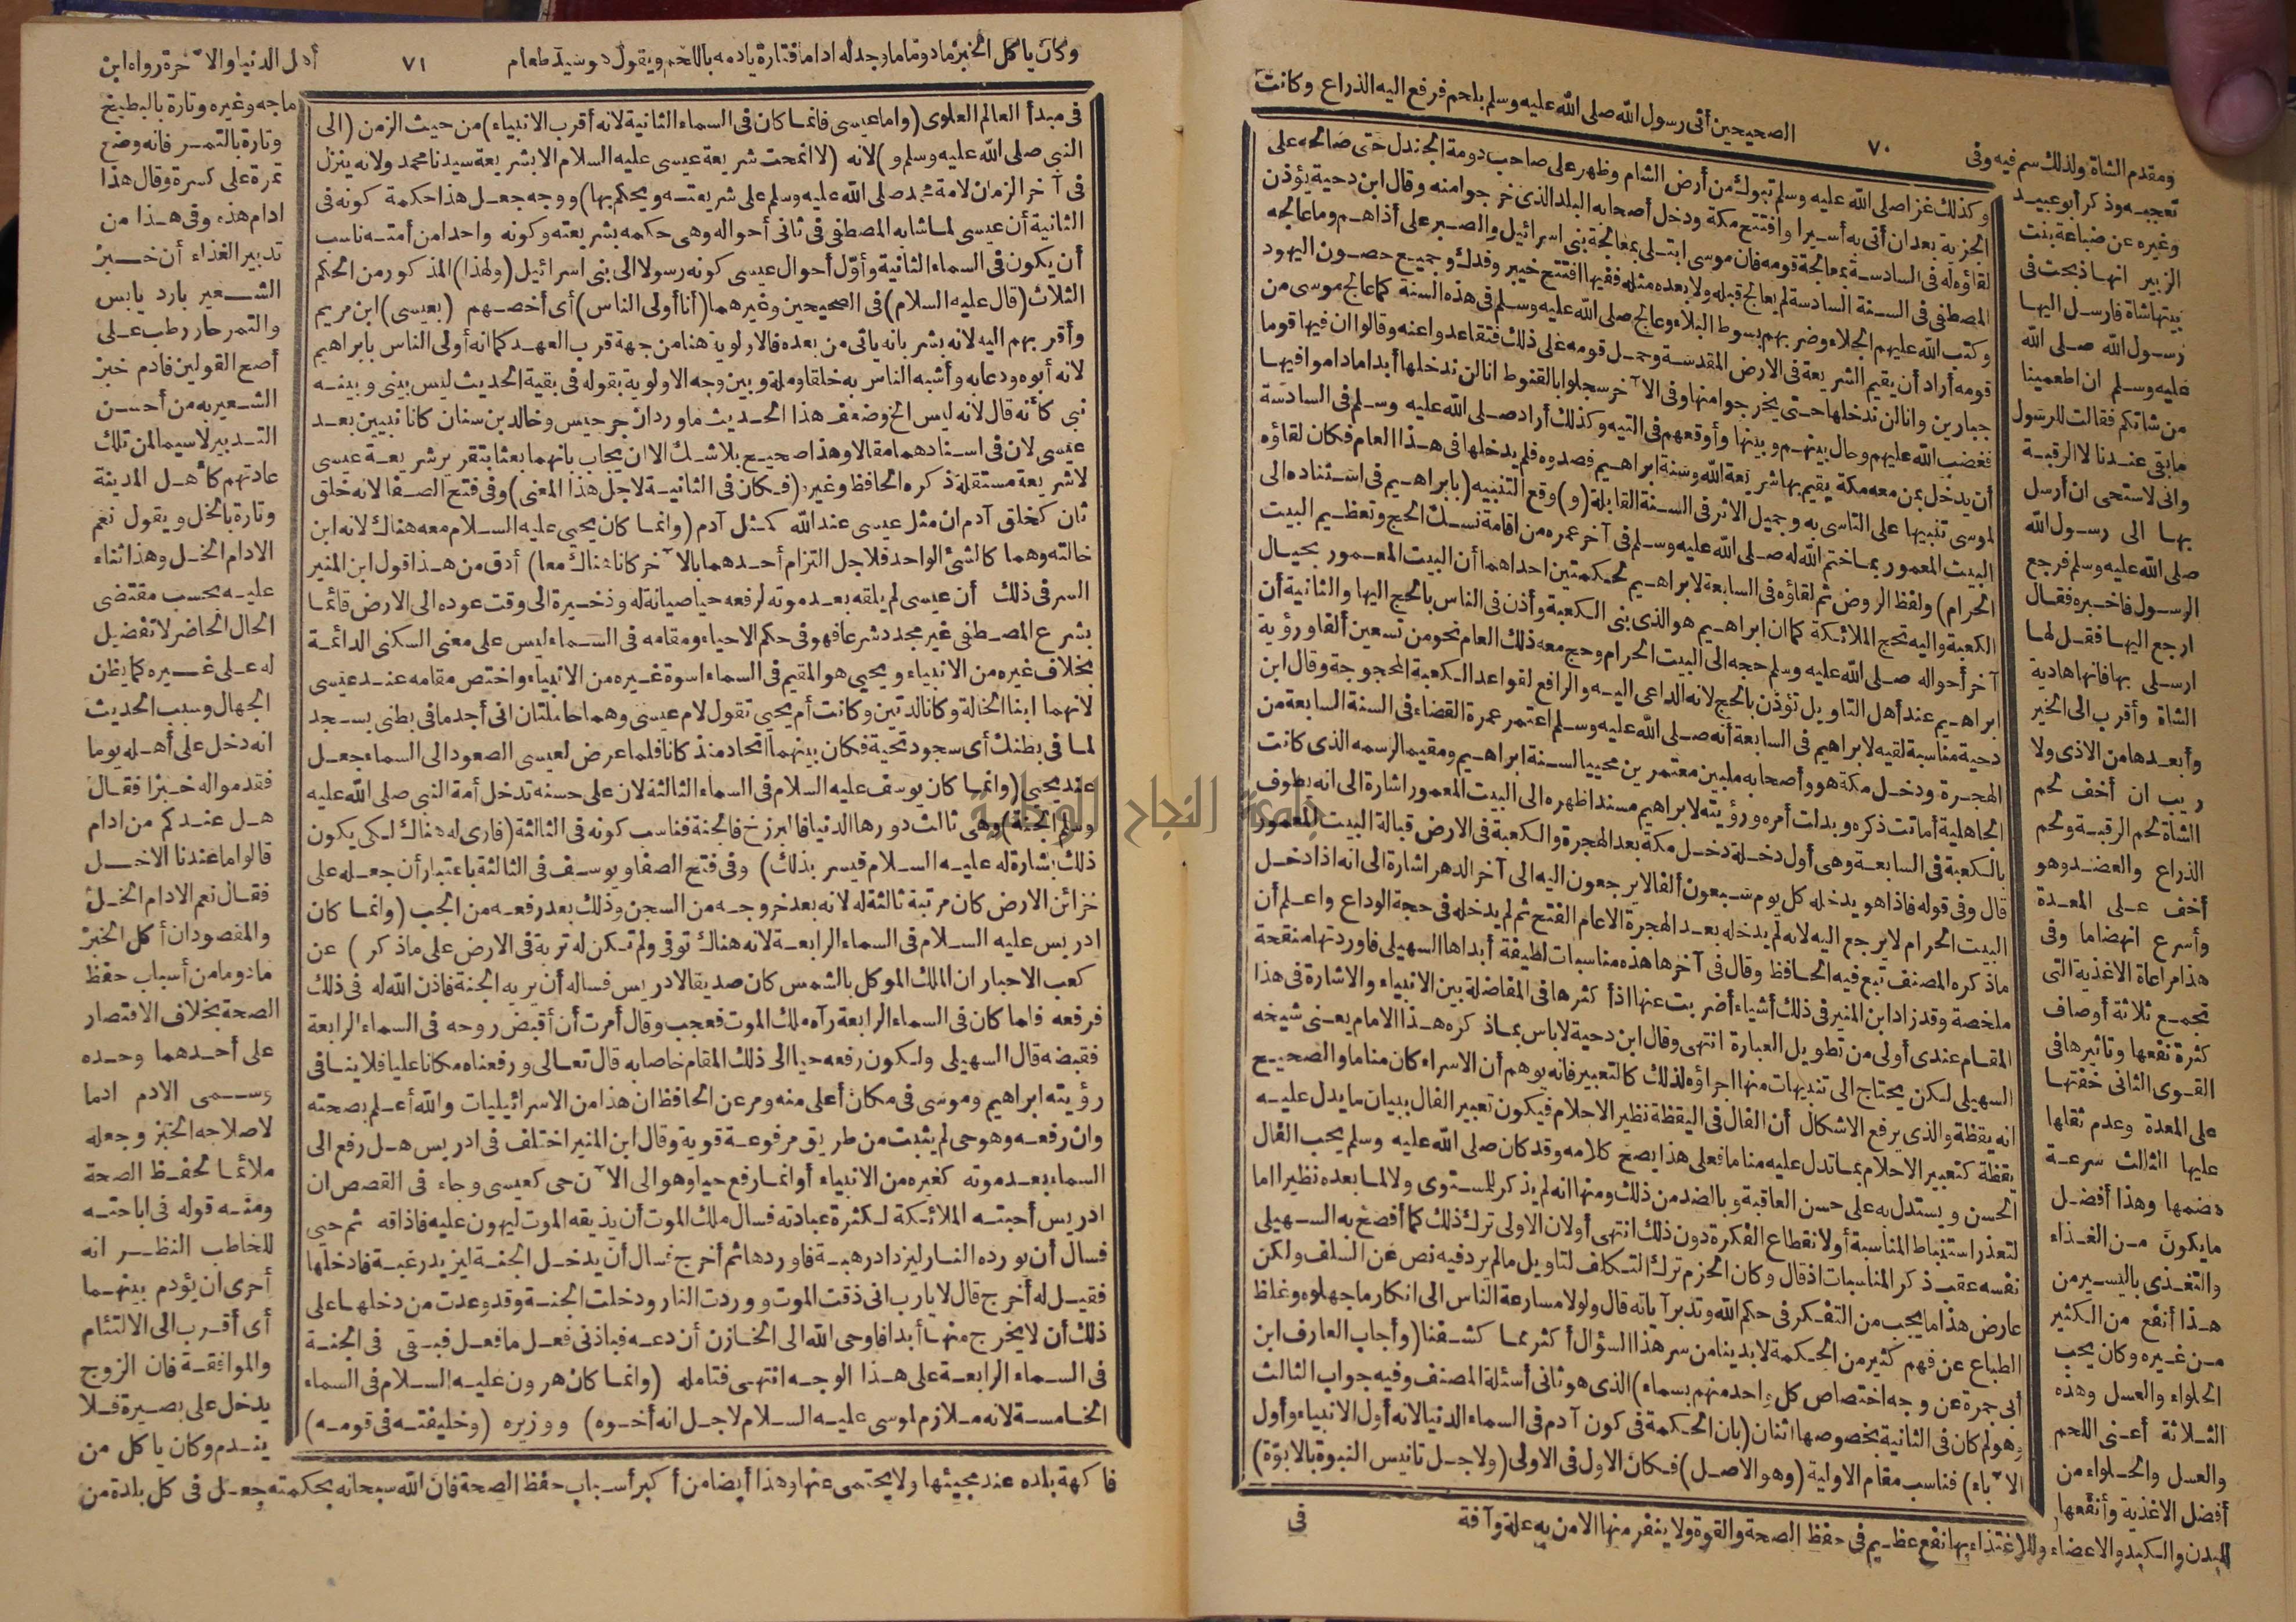 ومقدم الشاة ولذلك سم فيه وفى ٧٠ الصحيحين أتى رسول الله صلى الله عليه وسلم بلحم فرفع اليه الذراع وكانت
تعجبه وذكر أبو عبيد
وغيره عن ضباعة بنت
الزبير انها ذبحت فى
بيتها شاة فارسل اليها
رسول الله صلى الله
عليه وسلم ان اطعمينا
من شاتكم فقالت للرسول
ما بقى عندنا الا الرقبة
وانى لاستحى ان أرسل
بها الى رسول الله
صلى الله عليه وسلم فرجع
الرسول فاخبره فقال
ارجع اليها فقل لها
ارسلى بها فانها هادية
الشاة وأقرب الى الخير
وأبعدها من الاذى ولا
ريب ان أخف لحم
الشاة لحم الرقبة ولحم
الذراع والعضد وهو
أخف على المعدة
وأسرع انهضاما وفى
هذا مراعاة الاغذية التى
تجمع ثلاثة أوصاف
كثرة نفعها وتاثيرها فى
القوى الثانى خفتها
على المعدة وعدم ثقلها
عليها الثالث سرعة
هضمها وهذا أفضل
ما يكون من الغذاء
والتغذى باليسير من
هذا أنفع من الكثير
من غيره وكان يحب
الحلواء والعسل وهذه
الثلاثة أعنى اللحم
والعسل والحلواء من
أفضل الاغذية وأنفعها
للبدن والكبد والاعضاء وللاغتذاء بها نفع عظيم فى حفظ الصحة والقوة ولا ينفر منها الا من به علة وآفة
وكذلك غزا صلى الله عليه وسلم تبوك من أرض الشام وظهر على صاحب دومة الجندل حتى صالحه على
الجزية بعد ان أتى به أسيرا وافتتح مكة ودخل أصحابه البلد الذى خرجوا منه وقال ابن دحية يؤذن
لقاؤه له فى السادسة بمعالجة قومه فان موسى ابتلى بمعالجة بنى اسرائيل والصبر على أذاهم وما عالجه
المصطفى فى السنة السادسة لم يعالج قبله ولا بعده مثله ففيها افتتح خيبر وفدك وجميع حصون اليهود
وكتب الله عليهم الجلاء وضربهم بسوط البلاء وعالج صلى الله عليه وسلم فى هذه السنة كما عالج موسى من
قومه أراد أن يقيم الشريعة فى الارض المقدسة وحمل قومه على ذلك فتقاعدوا عنه وقالوا ان فيها قوما
جبارين وانا لن ندخلها حتى يخرجوا منها وفى الآخر سجلوا بالقنوط انا لن ندخلها أبدا ما داموا فيها
فغضب الله عليهم وحال بينهم وبينها وأوقعهم فى التيه وكذلك أراد صلى الله عليه وسلم فى السادسة
أن يدخل بمن معه مكة يقيم بها شريعة الله وسنة ابراهيم فصدوه فلم يدخلها فى هذا العام فكان لقاؤه
لموسى تنبيها على التاسى به وجميل الاثر فى السنة القابلة (و) وقع التنبيه (بابراهيم فى استناده الى
البيت المعمور بما ختم الله له صلى الله عليه وسلم فى آخر عمره من اقامة نسك الحج وتعظيم البيت
الحرام) ولفظ الروض ثم لقاؤه فى السابعة لابراهيم لحكمتين احداهما أن البيت المعمور بحيال
الكعبة واليه تحج الملائكة كما ان ابراهيم هو الذى بنى الكعبة وأذن فى الناس بالحج اليها والثانية أن
آخر أحواله صلى الله عليه وسلم حجه الى البيت الحرام وحج معه ذلك العام نحو من تسعين ألفا ورؤية
ابراهيم عند أهل التاويل تؤذن بالحج لانه الداعى اليه والرافع لقواعد الكعبة المحجوجة وقال ابن
دحية مناسبة لقيه لابراهيم فى السابعة أنه صلى الله عليه وسلم اعتمر عمرة القضاء فى السنة السابعة من
الهجرة ودخل مكة هو وأصحابه ملبين معتمرين محييا لسنة ابراهيم ومقيما لرسمه الذى كانت
الجاهلية أماتت ذكره وبدلت أمره ورؤيته لابراهيم مسندا ظهره الى البيت المعمور اشارة الى انه يطوف
بالكعبة فى السابعة وهى أول دخلة دخل مكة بعد الهجرة والكعبة فى الارض قبالة البيت المعمور
قال وفى قوله فاذا هو يدخله كل يوم سبعون ألفا لا يرجعون اليه الى آخر الدهر اشارة الى انه اذا دخل
البيت الحرام لا يرجع اليه لانه لم يدخله بعد الهجرة الا عام الفتح ثم لم يدخله فى حجة الوداع واعلم أن
ما ذكره المصنف تبع فيه الحافظ وقال فى آخرها هذه مناسبات لطيفة أبداها السهيلى فاوردتها منقحة
ملخصة وقد زاد ابن المنير فى ذلك أشياء أضربت عنها اذ أكثرها فى المفاضلة بين الانبياء والاشارة فى هذا
المقام عندى أولى من تطويل العبارة انتهى وقال ابن دحية لا باس بما ذكره هذا الامام يعنى شيخه
السهيلى لكن يحتاج الى تنبيهات منها اجراؤه لذلك كالتعبير فانه يوهم أن الاسراء كان مناما والصحيح
انه يقظة والذى يرفع الاشكال أن الفال فى اليقظة نظير الاحلام فيكون تعبير الفال ببيان ما يدل عليه
يقظة كتعبير الاحلام بما تدل عليه مناما فعلى هذا يصح كلامه وقد كان صلى الله عليه وسلم يحب الفال
الحسن ويستدل به على حسن العاقبة وبالضد من ذلك ومنها انه لم يذكر للمستوى ولا لما بعده نظيرا اما
لتعذر استنباط المناسبة أولا نقطاع الفكرة دون ذلك انتهى أولان الاولى ترك ذلك كما أفصح به السهيلى
نفسه عقب ذكر المناسبات اذ قال وكان الحزم ترك التكلف لتاويل ما لم يرد فيه نص عن السلف ولكن
عارض هذا ما يجب من التفكر فى حكم الله وتدبر آياته قال ولولا مسارعة الناس الى انكار ما جهلوه وغلظ
الطباع عن فهم كثير من الحكمة لابدينا من سر هذا السؤال أكثر مما كشفنا (وأجاب العارف ابن
أبى جمرة عن وجه اختصاص كل واحد منهم بسماء) الذى هو ثانى أسئلة المصنف وفيه جواب الثالث
وهو لم كان فى الثانية بخصوصها اثنان (بان الحكمة فى كون آدم فى السماء الدنيا لانه أول الانبياء وأول
الآباء) فناسب مقام الاولية (وهو الاصل) فكان الاول فى الاولى (ولاجل تانيس النبوة بالابوة)
فى
وكان ياكل الخبز مادوما ما وجد له اداما فتارة يادمه باللحم ويقول هو سيد طعام ٧١ أهل الدنيا والآخرة رواه ابن
ماجه وغيره وتارة بالبطيخ
وتارة بالتمر فانه وضع
تمرة على كسرة وقال هذا
ادام هذه وفى هذا من
تدبير الغذاء أن خبز
الشعير بارد يابس
والتمر حار رطب على
أصح القولين فادم خبز
الشعير به من أحسن
التدبير لا سيما لمن تلك
عادتهم كأهل المدينة
وتارة بالخل ويقول نعم
الادام الخل وهذا ثناء
عليه بحسب مقتضى
الحال الحاضر لا تفضيل
له على غيره كما يظن
الجهال وسبب الحديث
انه دخل على أهله يوما
فقدموا له خبزا فقال
هل عندكم من ادام
قالوا ما عندنا الا خل
فقال نعم الادام الخل
والمقصود ان أكل الخبز
مادوما من أسباب حفظ
الصحة بخلاف الاقتصار
على أحدهما وحده
وسمى الادم ادما
لاصلاحه الخبز وجعله
ملائما لحفظ الصحة
ومنه قوله فى اباحته
للخاطب النظر انه
أحرى ان يؤدم بينهما
أى أقرب الى الالتئام
والموافقة فان الزوج
يدخل على بصيرة فلا
يندم وكان ياكل من
فاكهة بلده عند مجيئها ولا يحتمى عنها وهذا أيضا من أكبر أسباب حفظ الصحة فان الله سبحانه بحكمته جعل فى كل بلدة من
فى مبدأ العالم العلوى (واما عيسى فانما كان فى السماء الثانية لانه أقرب الانبياء) من حيث الزمن (الى
النبى صلى الله عليه وسلم و) لانه (لا انمحت شريعة عيسى عليه السلام الا بشريعة سيدنا محمد ولانه ينزل
فى آخر الزمان لامة محمد صلى الله عليه وسلم على شريعته ويحكم بها) ووجه جعل هذا حكمة كونه فى
الثانية أن عيسى لما شابه المصطفى فى ثانى أحواله وهى حكمه بشريعته وكونه واحدا من أمته ناسب
أن يكون فى السماء الثانية وأول أحوال عيسى كونه رسولا الى بنى اسرائيل (ولهذا) المذكور من الحكم
الثلاث (قال عليه السلام) فى الصحيحين وغيرهما (أنا أولى الناس) أى أخصهم (بعيسى) ابن مريم
وأقربهم اليه لانه بشر بانه ياتى من بعده فالاولوية هنا من جهة قرب العهد كما انه أولى الناس بابراهيم
لانه أبوه ودعا به وأشبه الناس به خلقا وملة وبين وجه الاولوية بقوله فى بقية الحديث ليس بينى وبينه
نبى كأنه قال لانه ليس الخ وضعف هذا الحديث ما ورد ان جرجيس وخالد بن سنان كانا نبيين بعد
عيسى لان فى اسنادهما مقالا وهذا صحيح بلا شك الا ان يجاب بانهما بعثا بتقرير شريعة عيسى
لا شريعة مستقلة ذكره الحافظ وغيره (فكان فى الثانية لاجل هذا المعنى) وفى فتح الصفا لانه خلق
ثان كخلق آدم ان مثل عيسى عند الله كمثل آدم (وانما كان يحيى عليه السلام معه هناك لانه ابن
خالته وهما كالشئ الواحد فلاجل التزام أحدهما بالآخر كانا هناك معا) أدق من هذا قول ابن المنير
السر فى ذلك أن عيسى لم يلقه بعد موته لرفعه حيا صيانة له وذخيرة الى وقت عوده الى الارض قائما
بشرع المصطفى غير مجدد شرعا فهو فى حكم الاحياء ومقامه فى السماء ليس على معنى السكنى الدائمة
بخلاف غيره من الانبياء ويحيى هو المقيم فى السماء اسوة غيره من الانبياء واختص مقامه عند عيسى
لانهما ابنا الخالة وكانا لدتين وكانت أم يحيى تقول لام عيسى وهما حاملتان انى أجد ما فى بطنى يسجد
لما فى بطنك أى سجود تحية فكان بينهما اتحاد منذ كانا فلما عرض لعيسى الصعود الى السماء جعل
عند يحيى (وانما كان يوسف عليه السلام فى السماء الثالثة لان على حسنه تدخل أمة النبى صلى الله عليه
وسلم الجنة) وهى ثالث دورها الدنيا فالبرزخ فالجنة فناسب كونه فى الثالثة (فارى له هناك لكى يكون
ذلك بشارة له عليه السلام فيسر بذلك) وفى فتح الصفا ويوسف فى الثالثة باعتبار أن جعله على
خزائن الارض كان مرتبة ثالثة له لانه بعد خروجه من السجن وذلك بعد رفعه من الجب (وانما كان
ادريس عليه السلام فى السماء الرابعة لانه هناك توفى ولم تكن له تربة فى الارض على ما ذكر ) عن
كعب الاحبار ان الملك الموكل بالشمس كان صديقا لادريس فساله أن يريه الجنة فاذن الله له فى ذلك
فرفعه فلما كان فى السماء الرابعة رآه ملك الموت فعجب وقال أمرت أن أقبض روحه فى السماء الرابعة
فقبضه قال السهيلى ولكون رفعه حيا الى ذلك المقام خاصا به قال تعالى ورفعناه مكانا عليا فلا ينافى
رؤيته ابراهيم وموسى فى مكان أعلى منه ومر عن الحافظ ان هذا من الاسرائيليات والله أعلم بصحته
وان رفعه وهو حى لم يثبت من طريق مرفوعة قوية وقال ابن المنير اختلف فى ادريس هل رفع الى
السماء بعد موته كغيره من الانبياء أو انما رفع حيا وهو الى الآن حى كعيسى وجاء فى القصص ان
ادريس أحبته الملائكة لكثرة عبادته فسال ملك الموت أن يذيقه الموت ليهون عليه فاذاقه ثم حيى
فسال أن يورده النار ليزداد رهبة فاوردها ثم أخرج فسال أن يدخل الجنة ليزيد رغبة فادخلها
فقيل له أخرج قال لا يارب انى ذقت الموت ووردت النار ودخلت الجنة وقد وعدت من دخلها على
ذلك أن لا يخرج منها أبدا فاوحى الله الى الخازن أن دعه فباذنى فعل ما فعل فبقى فى الجنة
فى السماء الرابعة على هذا الوجه انتهى فتامله (وانما كان هرون عليه السلام فى السماء
الخامسة لانه ملازم لموسى عليه السلام لاجل انه أخوه) ووزيره (وخليفته فى قومه)
جامعة النجاح الوطنية